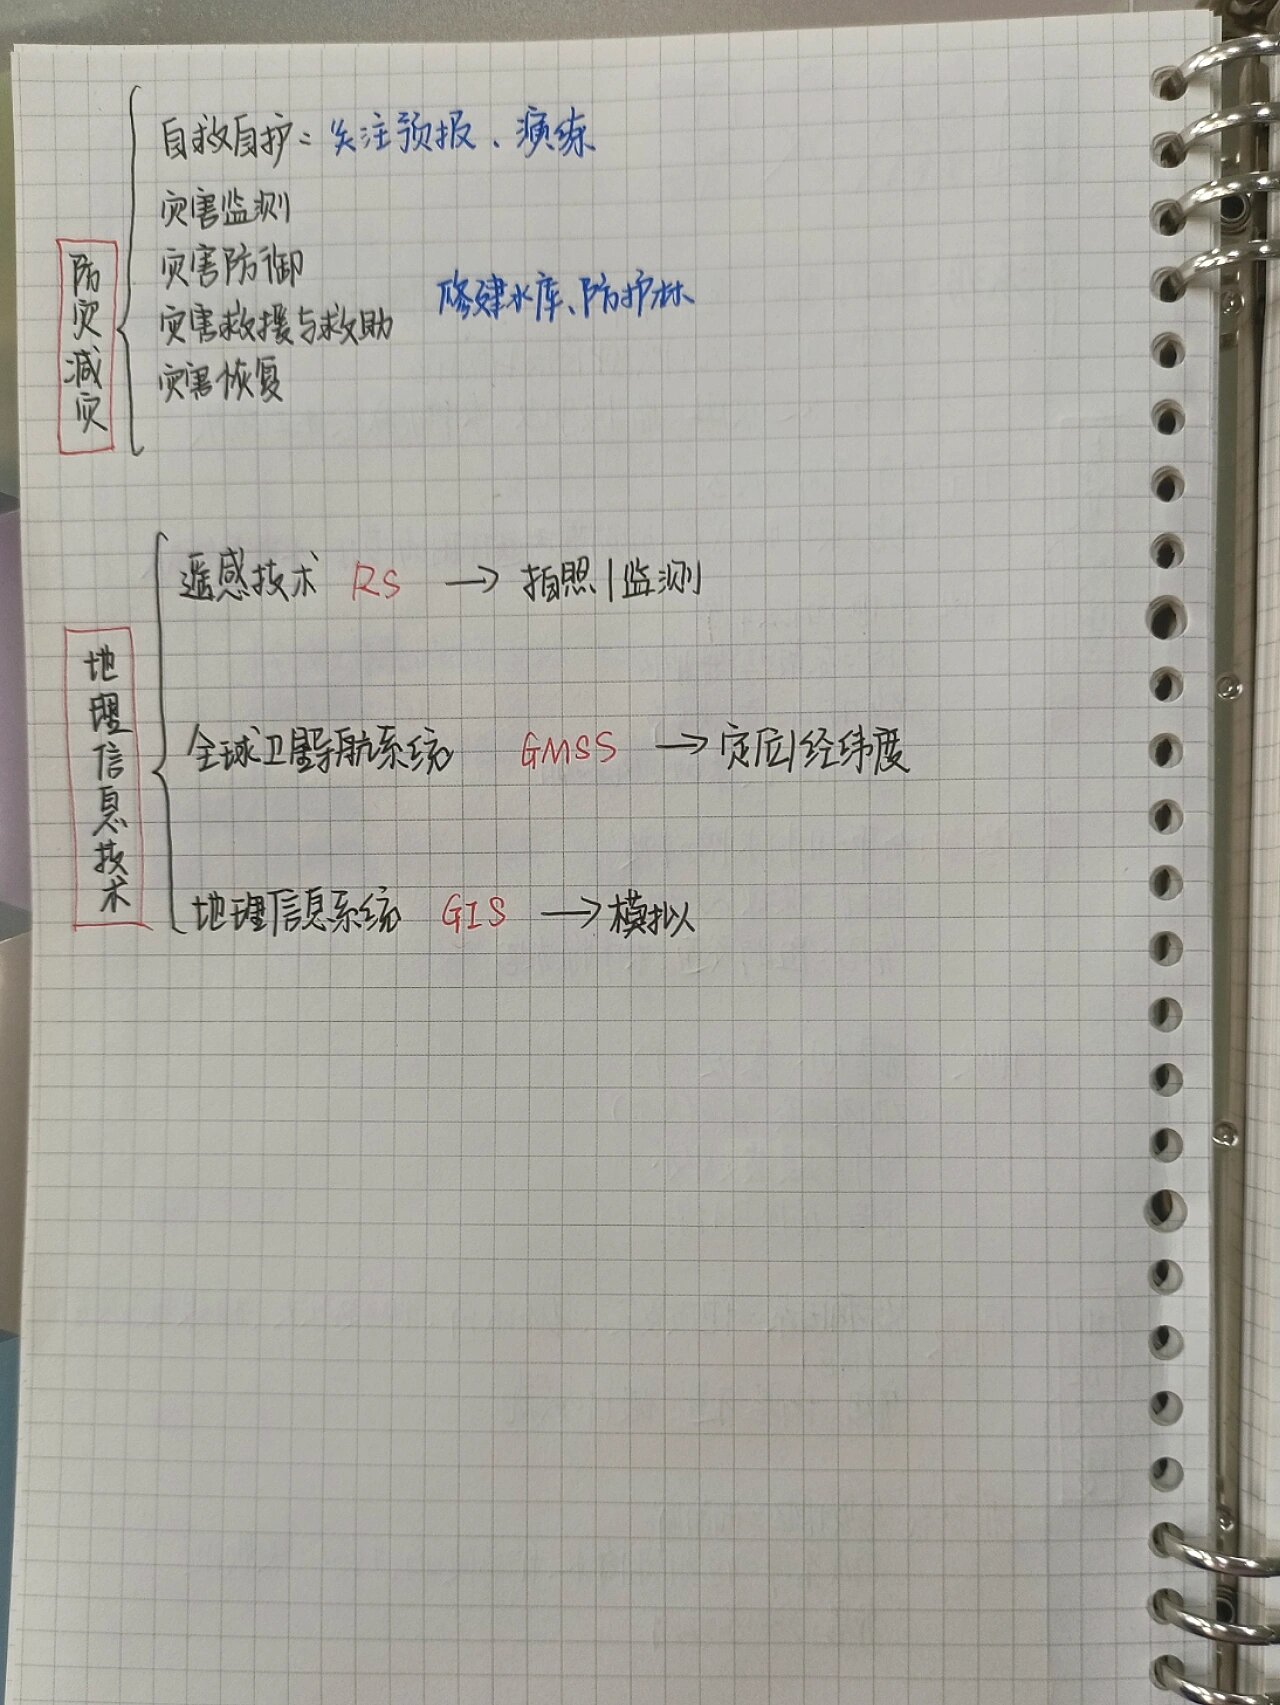 防灾减灾
自救自护：关注预报、演练
灾害监测
灾害防御
修建水库、防护林
灾害救援与救助
灾害恢复
地理信息技术
遥感技术 RS → 拍照|监测
全球卫星导航系统 GMSS → 定位|经纬度
地理信息系统 GIS → 模拟